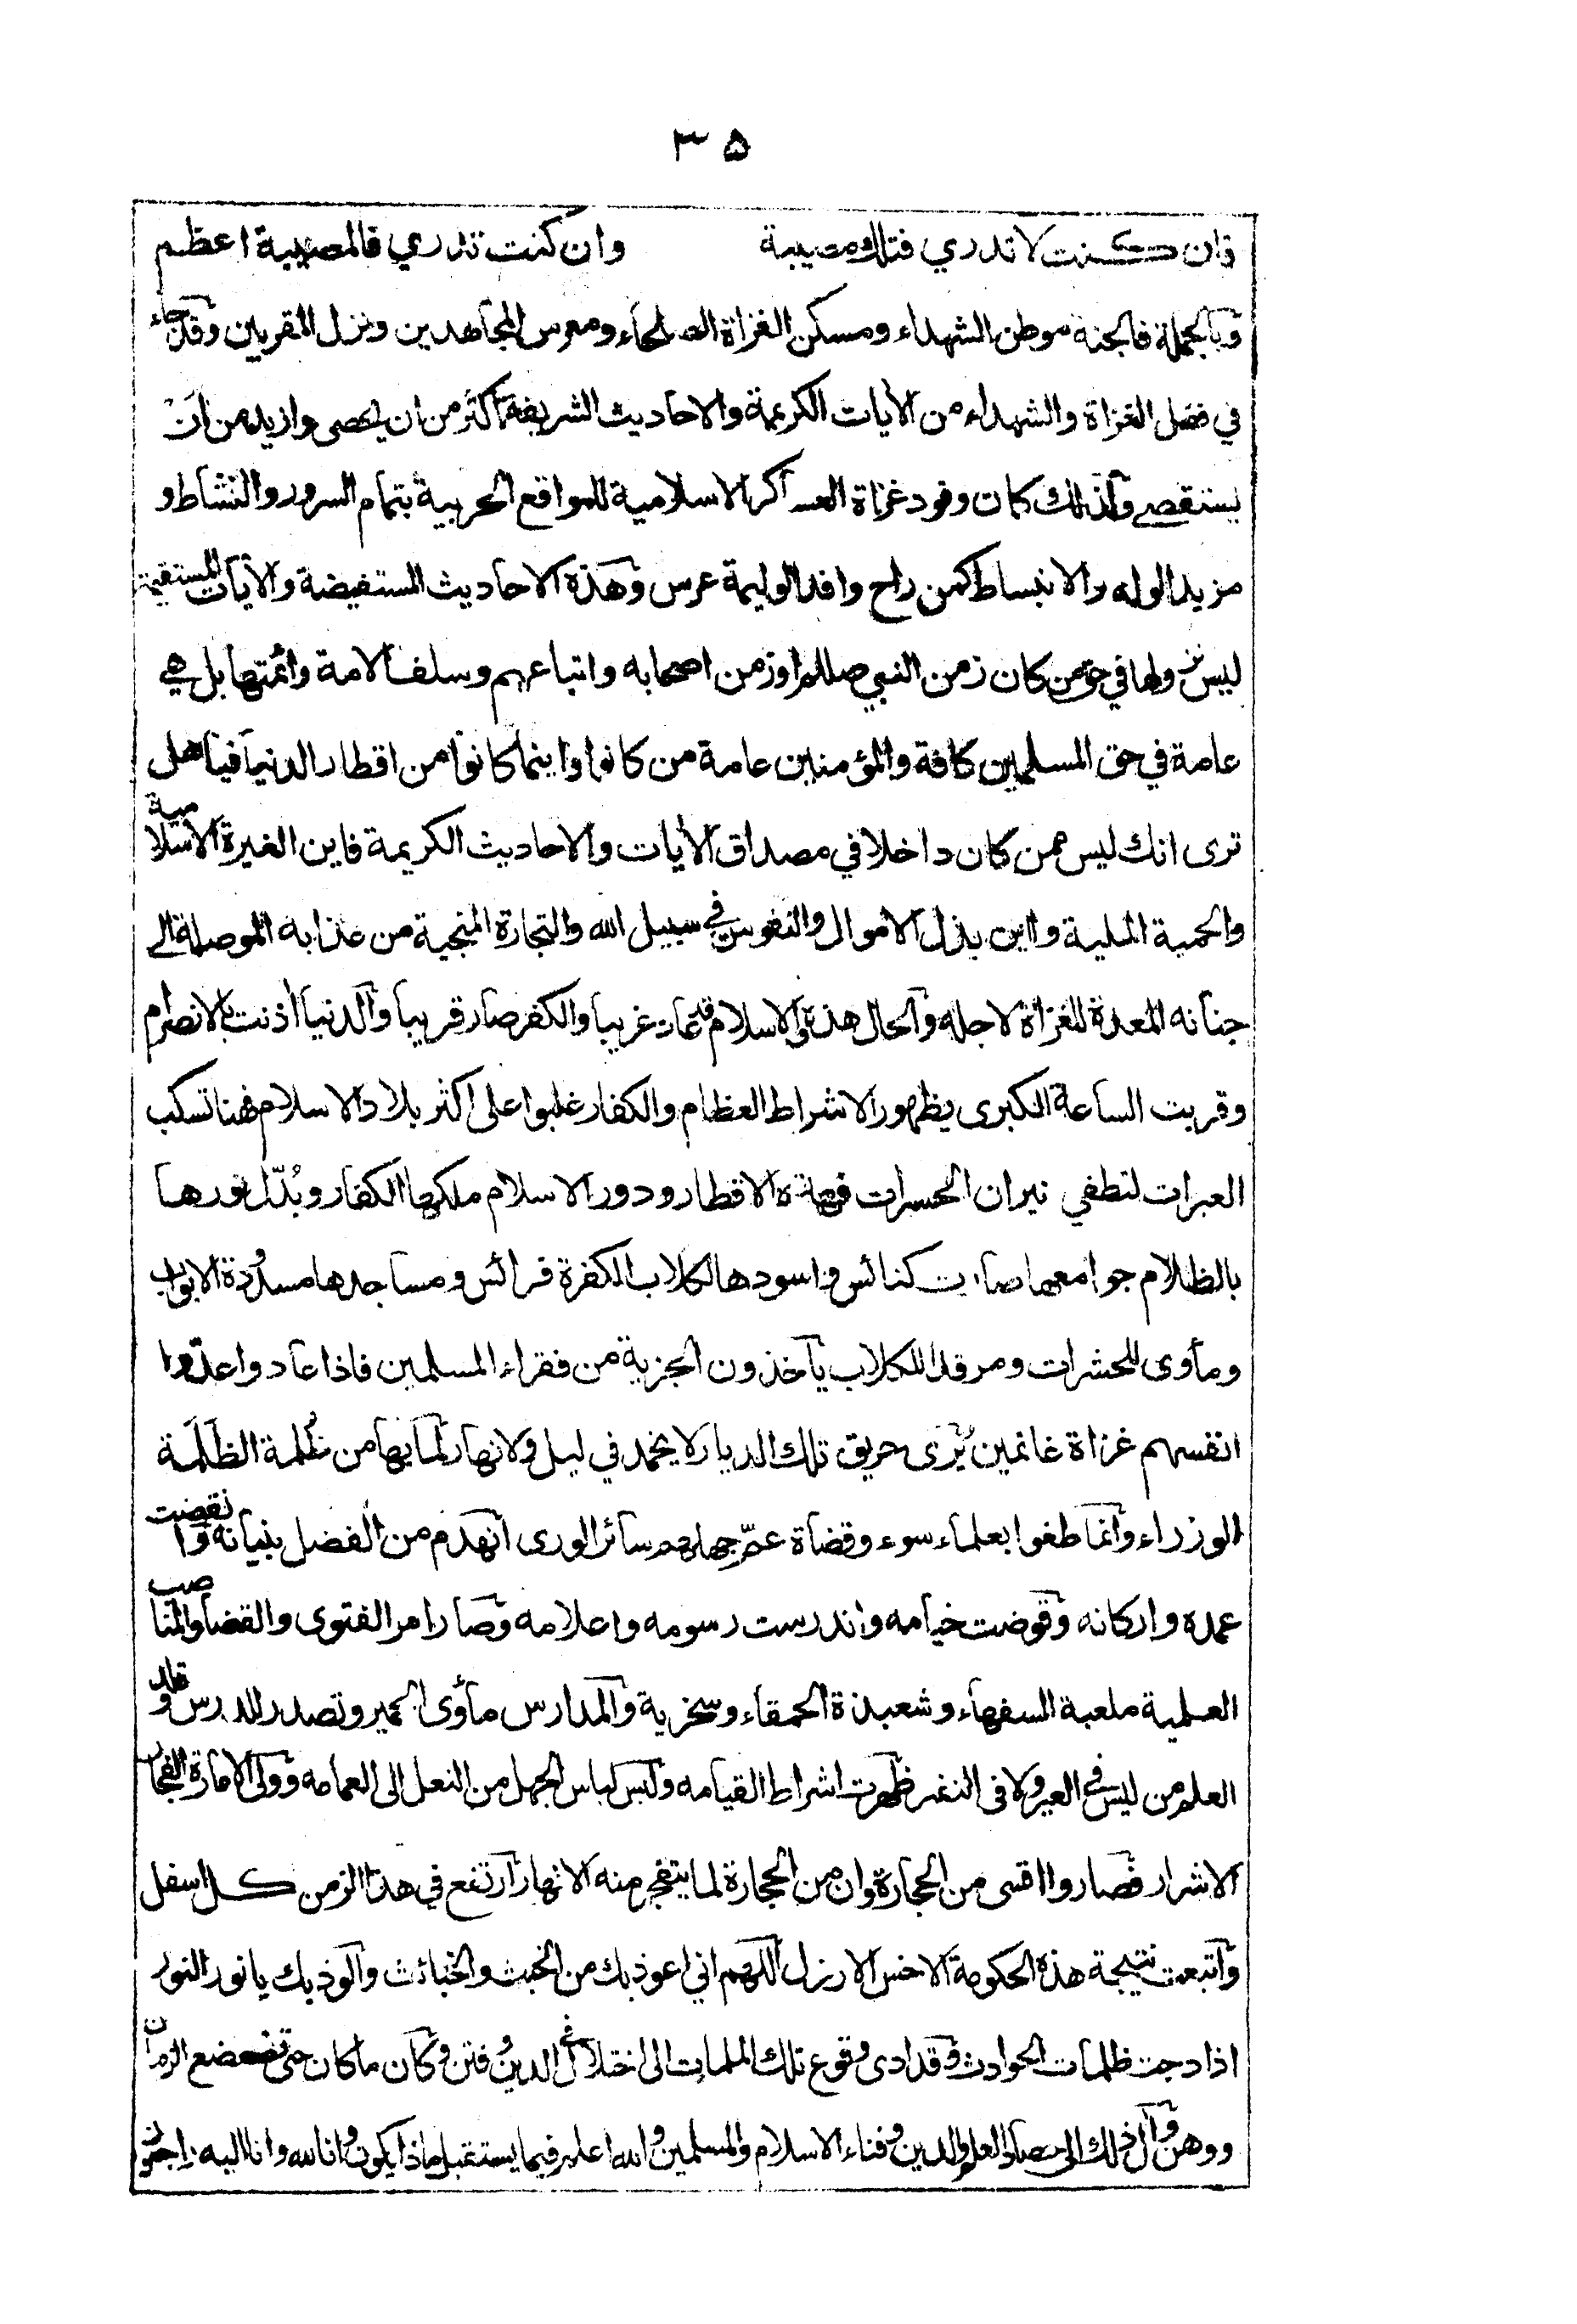 ٣٥
فان كنت لا تدري فتلك مصيبة وان كنت تدري فالمصيبة اعظم
وبالجملة فالجنة موطن الشهداء ومسكن الغزاة الصلحاء ومعرس المجاهدين ونزل المقربين وقد جاء
في فضل الغزاة والشهداء من الآيات الكريمة والاحاديث الشريفة اكثر من ان يحصى وازيد من ان
يستقصى ولذلك كان وفود غزاة العساكر الاسلامية للمواقع الحربية بتمام السرور والنشاط و
مزيد الوله والانبساط كمن راح وافدا لوليمة عرس وهذه الاحاديث المستفيضة والآيات المستقيمة
ليس نزولها في حق من كان زمن النبي صللم او زمن اصحابه واتباعهم وسلف الامة وائمتها بل هي
عامة في حق المسلمين كافة والمؤمنين عامة من كانوا واينما كانوا من اقطار الدنيا فيا هل
ترى انك ليس ممن كان داخلا في مصداق الآيات والاحاديث الكريمة فاين الغيرة الاسلامية
والحمية الملية واين بذل الاموال والنفوس في سبيل الله والتجارة المنجية من عذابه الموصلة الى
جنانه المعدة للغزاة لاجله والحال هذه والاسلام قد عاد غريبا والكفر صار قريبا والدنيا اذنت بالانصرام
وقربت الساعة الكبرى بظهور الاشراط العظام والكفار غلبوا على اكثر بلاد الاسلام فهنا تسكب
العبرات لتطفي نيران الحسرات فهذه الاقطار ودور الاسلام ملكها الكفار وبُدّل نورها
بالظلام جوامعها صارت كنائس واسودها لكلاب الكفرة فرائس ومساجدها مسدُودة الابواب
ومأوى للحشرات ومرقد للكلاب يأخذون الجزية من فقراء المسلمين فاذا عادوا عدّوا
انفسهم غزاة غانمين يُرى حريق تلك الديار لا يخمد في ليل ولا نهار لما بها من ظُلمة الظَلَمة
الوزراء وانما طغوا بعلماء سوء وقضاة عمّ جهلهم سائر الورى انهدم من الفضل بنيانه وانقضت
عمده واركانه وقوضت خيامه واندرست رسومه واعلامه وصار امر الفتوى والقضا والمناصب
العلمية ملعبة السفهاء وشعبذة الحمقاء وسخرية والمدارس مأوى الحمير وتصدر للدرس وقلد
العلم من ليس في العير ولا في النفير ظهرت اشراط القيامه ولبس لباس الجهل من النعل الى العمامه وولى الامارة الفجار
الاشرار فصاروا اقسى من الحجارة وان من الحجارة لما يتفجر منه الانهار ارتفع في هذا الزمن كل اسفل
واتبعت نتيجة هذه الحكومة الاخس الارزل اللهم اني اعوذ بك من الخبث والخبائث والوذ بك يا نور النور
اذا دجت ظلمات الحوادث وقد ادى وقوع تلك الملمات الى اختلال الدين وفتن وكان ما كان حتى تضعضع الزمان
ووهن وآل ذلك الى العلم والدين وفناء الاسلام والمسلمين والله اعلم فيما يستقبل ماذا يكون وانا لله وانا اليه راجعون